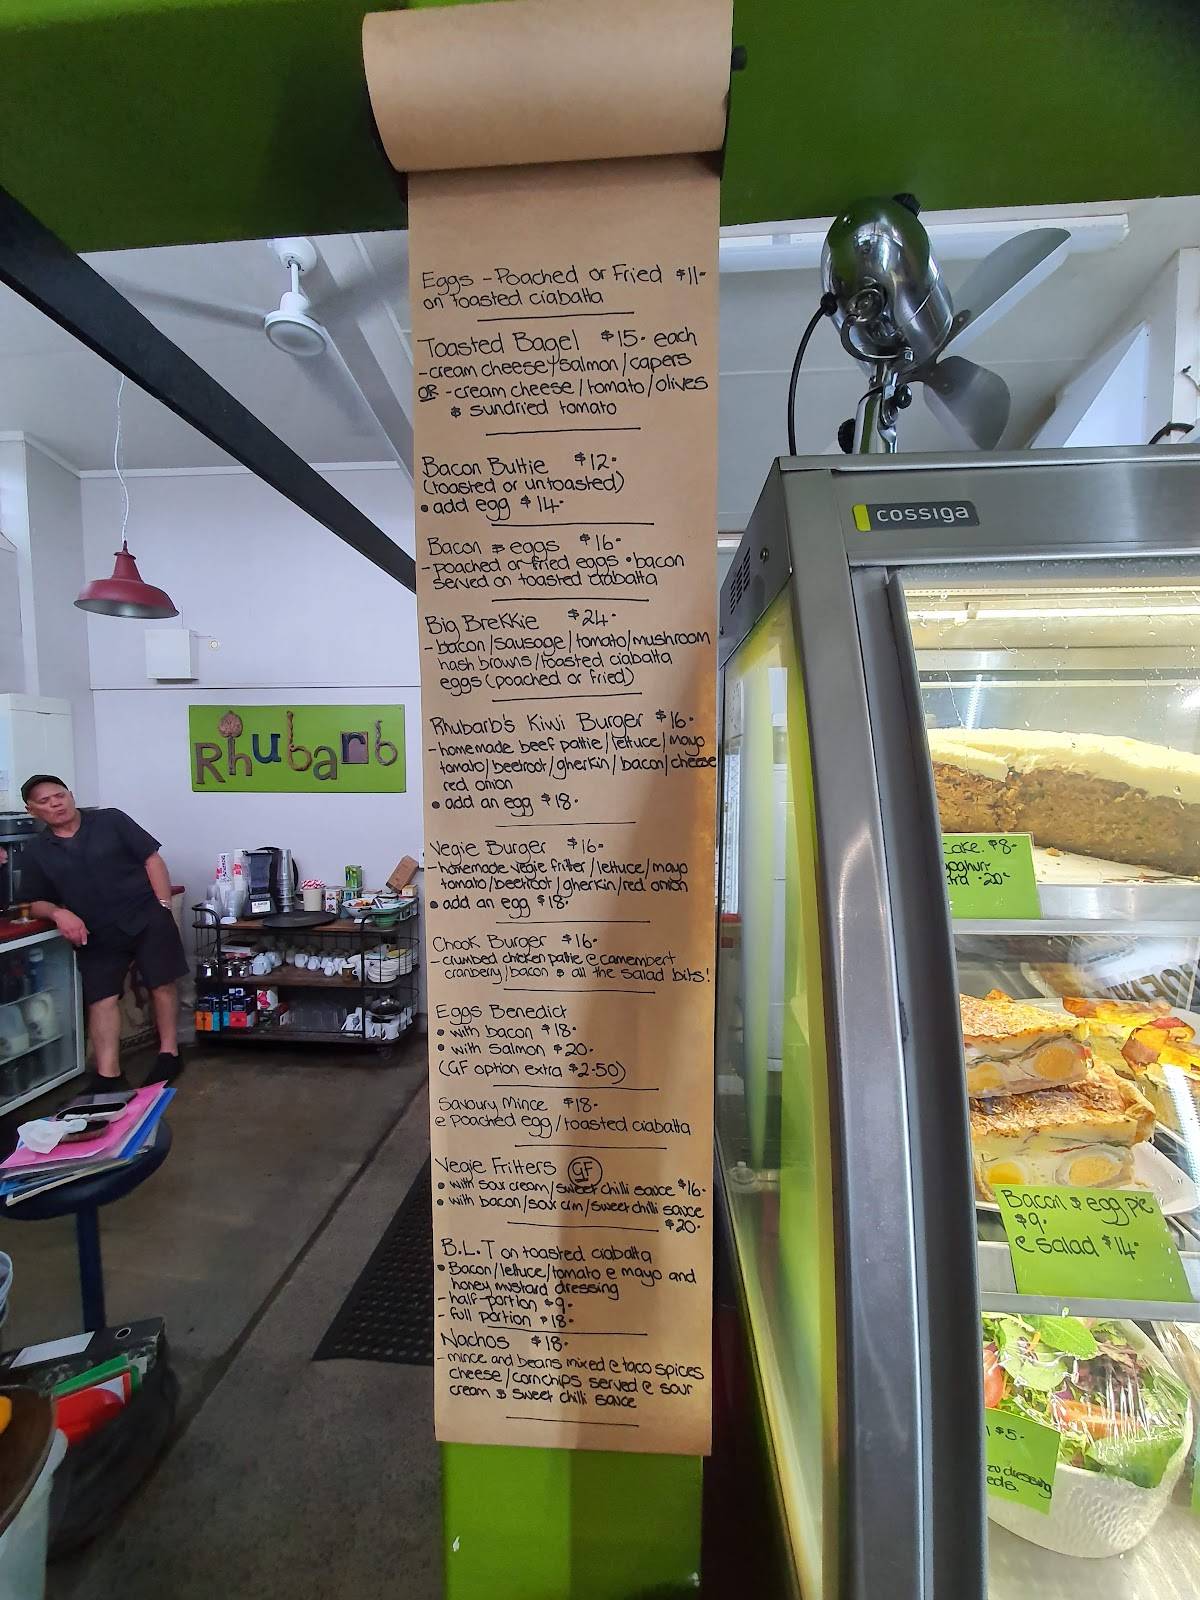 Eggs - Poached or Fried $11-
on toasted ciabatta
Toasted Bagel $15- each
- cream cheese/salmon/capers
OR - cream cheese/tomato/olives
& sundried tomato
Bacon Buttie $12-
(toasted or untoasted)
• add egg $14-
Bacon & eggs $16-
- poached or fried eggs • bacon
served on toasted ciabatta
Big Brekkie $24-
- bacon/sausage/tomato/mushroom
hash browns/toasted ciabatta
eggs (poached or fried)
Rhubarb's Kiwi Burger $16-
- homemade beef pattie/lettuce/mayo
tomato/beetroot/gherkin/bacon/cheese
red onion
• add an egg $18-
Vegie Burger $16-
- homemade vegie fritter/lettuce/mayo
tomato/beetroot/gherkin/red onion
• add an egg $18-
Chook Burger $16-
- crumbed chicken pattie @ camembert
cranberry/bacon & all the salad bits!
Eggs Benedict
• with bacon $18-
• with Salmon $20-
(GF option extra $2.50)
Savoury Mince $18-
@ poached egg/toasted ciabatta
Vegie Fritters GF
• with sour cream/sweet chilli sauce $16-
• with bacon/sour crm/sweet chilli sauce
$20-
B.L.T on toasted ciabatta
• Bacon/lettuce/tomato @ mayo and
honey mustard dressing
- half portion $9-
- full portion $18-
Nachos $18-
- mince and beans mixed @ taco spices
cheese/cornchips served @ sour
cream & sweet chilli sauce
Rhubarb
cossiga
Cake. $8-
yoghurt
Bacon & egg pie
$9-
@ salad $14-
$5-
dressing